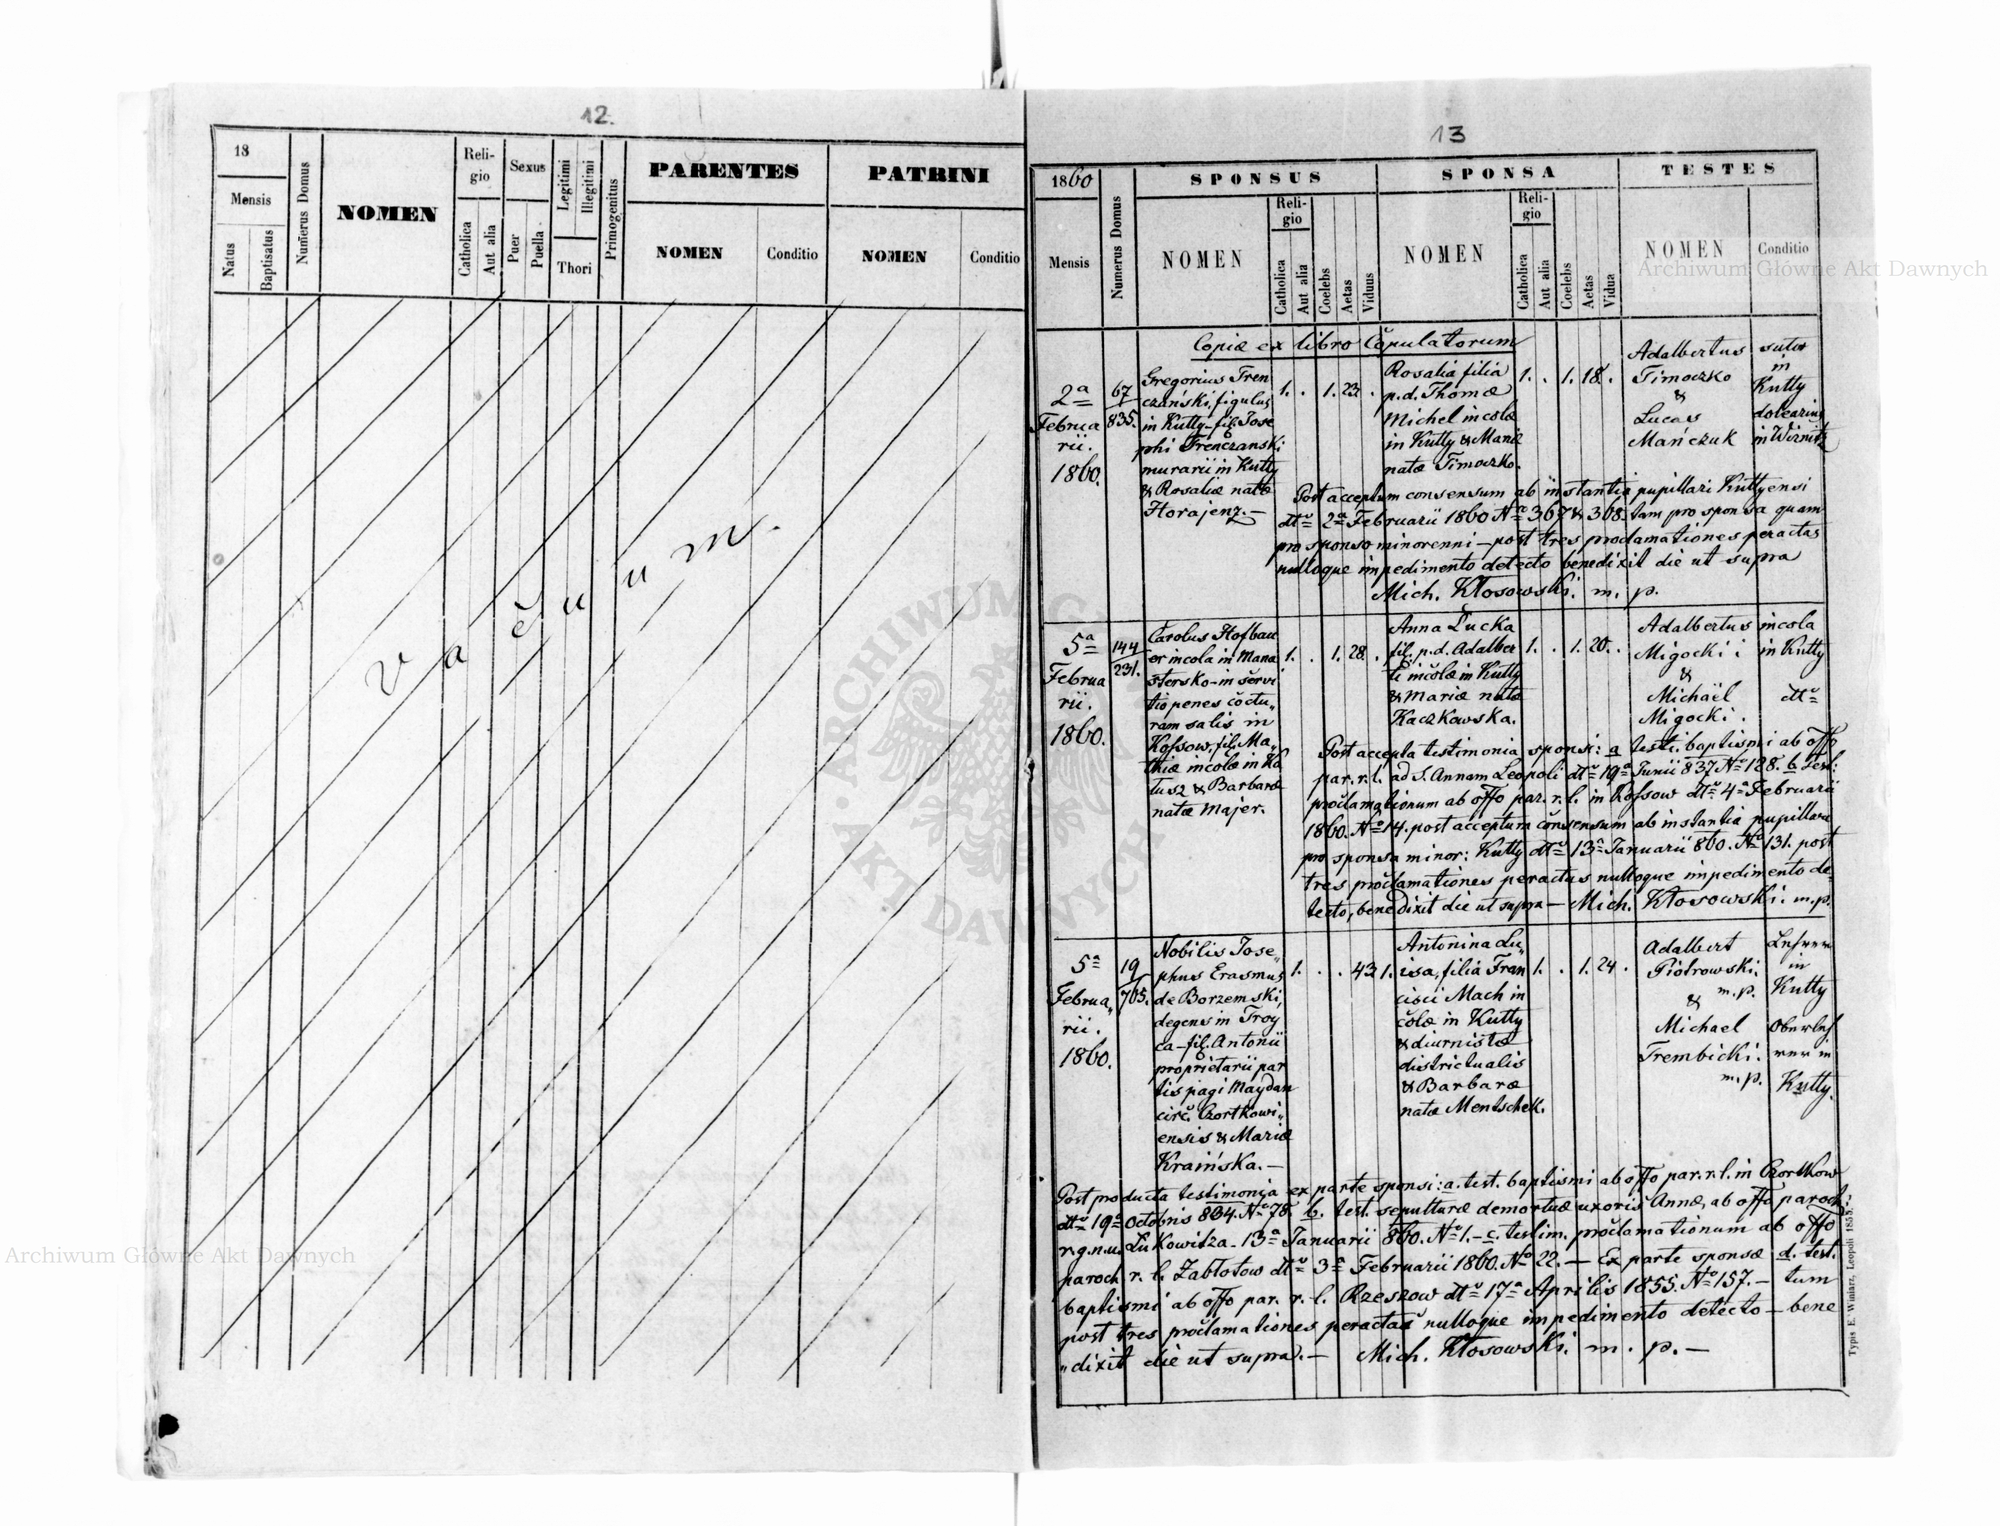 12.
18
Mensis
Natus
Baptisatus
Numerus Domus
NOMEN
Reli-
gio
Catholica
Aut alia
Sexus
Puer
Puella
Legitimi
Illegitimi
Thori
Primogenitus
PARENTES
NOMEN
Conditio
PATRINI
NOMEN
Conditio
Vačuum.
13
1860
Mensis
Numerus Domus
SPONSUS
NOMEN
Reli-
gio
Catholica
Aut alia
Coelebs
Aetas
Viduus
SPONSA
NOMEN
Reli-
gio
Catholica
Aut alia
Coelebs
Aetas
Vidua
TESTES
NOMEN
Conditio
Copiæ ex libro Copulatorum
2a
Februa
rii.
1860.
67
835.
Gregorius Fren
czański, figulus
in Kutty - fil. Jose
phi Frenczanski
murarii in Kutty
& Rosaliæ natæ
Horajenz. -
1. . 1. 23 .
Rosalia filia
p.d. Thomæ
Michel incolæ
in Kutty & Mariæ
natæ Timoczko.
1. . 1. 18. .
Adalbertus
Timoczko
&
Lucas
Mańczuk
sutor
in
Kutty
dolearius
in Wiznitz
Post acceptum consensum ab instantia pupillari Kuttyensi
dto 2a Februarii 1860 No 367 & 368. tam pro sponsa quam
pro sponso minorenni - post tres proclamationes peractas
nulloque impedimento detecto benedixit die ut supra
Mich. Kłosowski. m. p.
5a
Februa
rii.
1860.
144
231.
Carolus Hofbau
er incola in Mana
stersko - in servi
tio penes coctu„
ram salis in
Kossow, fil. Ma„
thiæ incolæ in Ka
tusz & Barbaræ
natæ Majer.
1. . 1. 28. .
Anna Łucka
fil. p.d. Adalber
ti incolæ in Kutty
& Mariæ natæ
Kaczkowska.
1. . 1. 20. .
Adalbertus
Migocki i
&
Michaël
Migocki.
incola
in Kutty
dto
Post accepta testimonia sponsi: a testi. baptismi ab offo
par. r. l. ad S. Annam Leopoli dto 19a Junii 837 No 128. b test:
proclamationum ab offo par. r. l. in Kossow dto 4a Februarii
1860. No 14. post acceptum consensum ab instantia pupillari
pro sponsa minor: Kutty dto 13a Januarii 860. No 131. post
tres proclamationes peractas nulloque impedimento de„
tecto, benedixit die ut supra - Mich. Kłosowski. m.p.
5a
Februa„
rii.
1860.
19
705.
Nobilis Jose„
phus Erasmus
de Borzemski,
degens in Troy
ca - fil. Antonii
proprietarii par
tis pagi Maydan
circ. Czortkowi„
ensis & Mariæ
Kraińska. -
1. . . 43 1.
Antonina Lu„
isa, filia Fran
cisci Mach in
colæ in Kutty
& diurnistæ
districtualis
& Barbaræ
natæ Mentschek.
1. . 1. 24 .
Adalbert
Piotrowski.
m. p.
&
Michael
Trembicki.
m. p.
in
Kutty
Kutty.
Post producta testimonia ex parte sponsi: a. test. baptismi ab offo par. r. l. in Czortkow
dto 19a Octobris 834. No 78. b. test. sepulturæ demortuæ uxoris Annæ, ab offo paroch:
r. g. n. u. Lukowitza - 13a Januarii 860. No 1. - c. testim. proclamationum ab offo
paroch r. l. Zabłotow dto 3a Februarii 1860. No 22. - Ex parte sponsæ d. test.
baptismi ab offo par. r. l. Rzeszow dto 17a Aprilis 1855. No 157. - tum
post tres proclamationes peractas nulloque impedimento detecto - bene
„dixit die ut supra. - Mich. Kłosowski. m. p. -
Typis E. Winiarz, Leopoli 1855.
Archiwum Główne Akt Dawnych
Archiwum Główne Akt Dawnych
ARCHIWUM GŁÓWNE AKT DAWNYCH